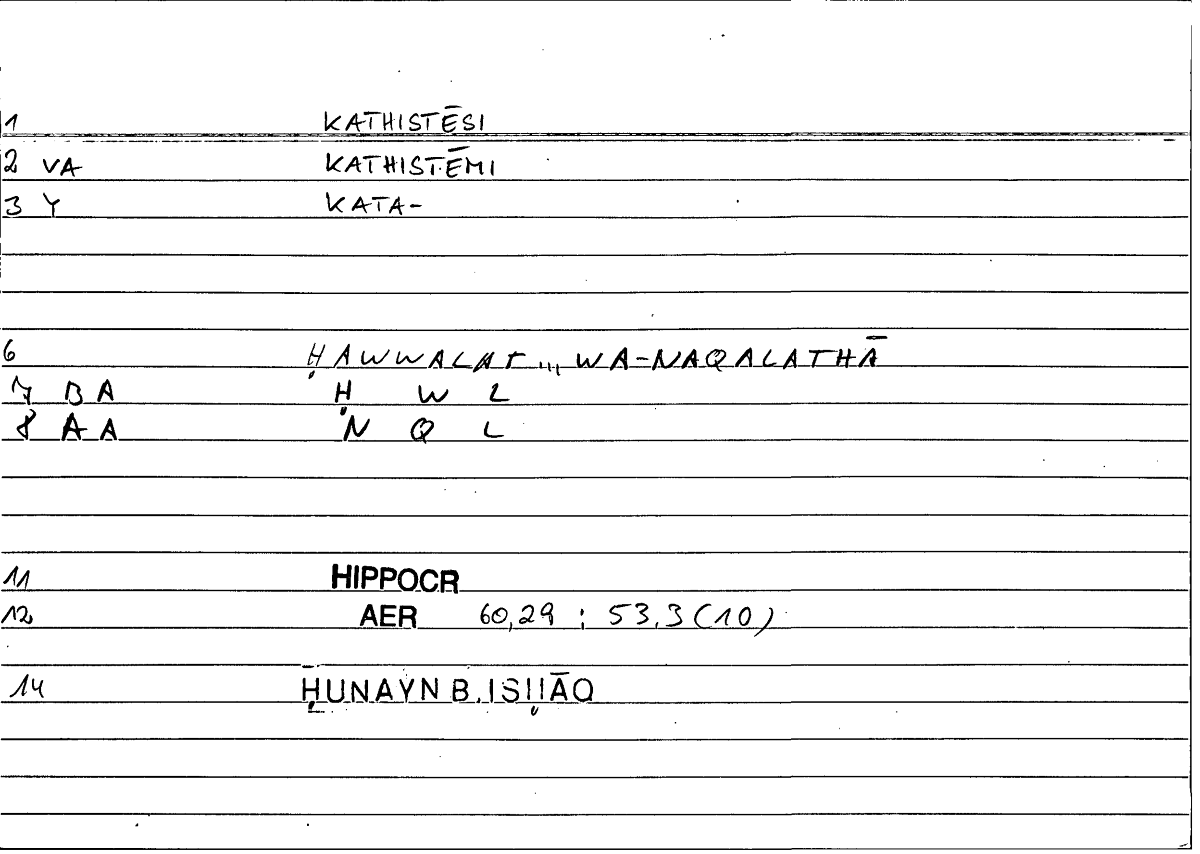 1 KATHISTĒSI
2 VA KATHISTĒMI
3 Y KATA-
6 ḤAWWALAT ... WA-NAQALATHĀ
7 BA Ḥ W L
8 AA N Q L
11 HIPPOCR
12 AER 60,29 ; 53.3 (10)
14 ḤUNAYN B. ISḤĀQ